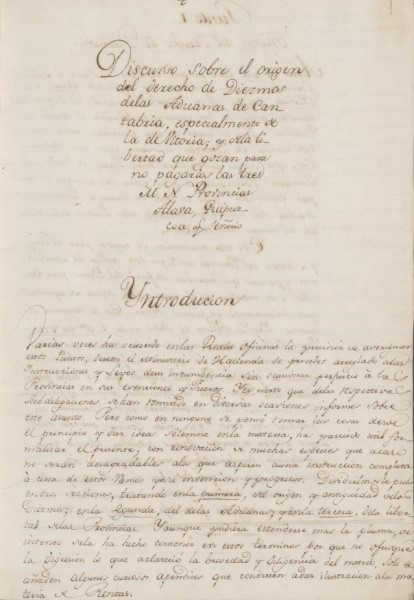 Discurso sobre el origen
del derecho de Diezmos
delas Aduanas de Can-
tabria, especialmente de
la de Vitoria; y dela li-
bertad que gozan para
no pagarlos las tres
M. N. Provincias
Alava, Guipuz-
coa, y Señorio
Yntroducion
Varias veces ha ocurrido en las Reales oficinas la precision de averiguar
estos puntos, deseoso el Ministerio de Hacienda de proceder arreglado alas
Instrucciones y Leyes de su incumbencia sin ocasionar perjuicio à las
Provincias en sus esenciones y Fueros. Es cierto que delas respectivas
Subdelegaciones se han tomado en diversas ocasiones informes sobre
este asunto. Pero como en ninguno se pensó tomar las cosas desde
el principio y dar idea solemne en la materia, ha parecido for-
malizar el presente, con renovacion de muchas especies que acaso
no serán desagradables ala que aspiren a una instruccion completa
à cerca de estos ramos, su invencion y progresos. Dividirase
en tres secciones, tratando en la primera, del origen y antiguedad delos
Diezmos; en la segunda, del delas Aduanas; y en la tercera, dela liber-
tad delas Provincias. Y aunque pudiera estenderse mas la pluma, de
intento se la ha hecho contener en estos terminos por que no ofusque
la digresion lo que aclarará la brevedad y diligencia del metodo. Solo se
añaden algunos curiosos apendices que conducen a dar ilustracion ala ma-
teria de Rentas.